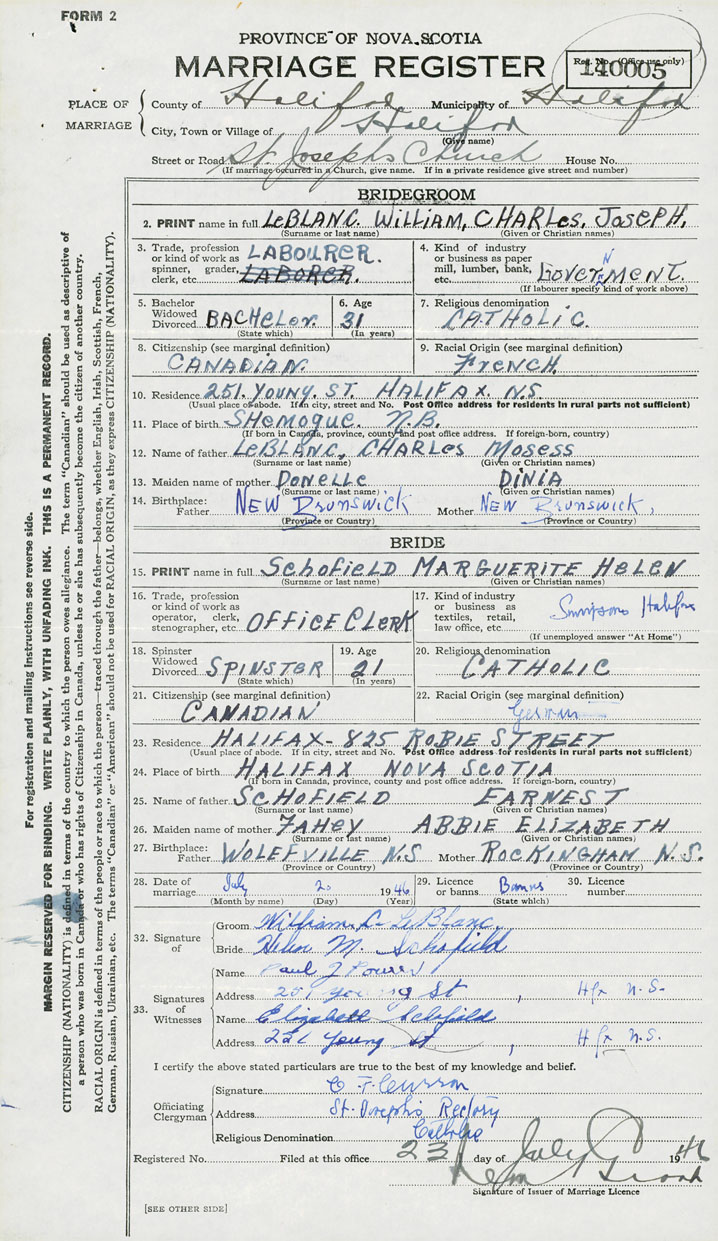 FORM 2
PROVINCE OF NOVA SCOTIA
MARRIAGE REGISTER
Reg. No. (Office use only)
140005
PLACE OF MARRIAGE
County of Halifax Municipality of Halifax
City, Town or Village of Halifax
(Give name)
Street or Road St. Josephs Church House No.
(If marriage occurred in a Church, give name. If in a private residence give street and number)
BRIDEGROOM
2. PRINT name in full LeBLANC. WILLIAM, CHARLES, JOSEPH.
(Surname or last name) (Given or Christian names)
3. Trade, profession or kind of work as spinner, grader, clerk, etc. LABOURER. LABORER.
4. Kind of industry or business as paper mill, lumber, bank, etc. GOVERNMENT.
(If labourer specify kind of work above)
5. Bachelor Widowed Divorced BACHELOR.
(State which)
6. Age 31
(In years)
7. Religious denomination CATHOLIC.
8. Citizenship (see marginal definition) CANADIAN.
9. Racial Origin (see marginal definition) FrENCH.
10. Residence 251. YOUNG. ST. HALIFAX. N.S.
(Usual place of abode. If in city, street and No. Post Office address for residents in rural parts not sufficient)
11. Place of birth SHEMOGUE. N.B.
(If born in Canada, province, county and post office address. If foreign-born, country)
12. Name of father LeBLANC, CHARLES MOSESS
(Surname or last name) (Given or Christian names)
13. Maiden name of mother DONELLE DINIA
(Surname or last name) (Given or Christian names)
14. Birthplace: Father NEW Brunswick Mother NEW Brunswick,
(Province or Country) (Province or Country)
BRIDE
15. PRINT name in full SCHOFIELD MARGUERITE HELEN
(Surname or last name) (Given or Christian names)
16. Trade, profession or kind of work as operator, clerk, stenographer, etc. OFFICE CLERK
17. Kind of industry or business as textiles, retail, law office, etc. Simpsons Halifax
(If unemployed answer "At Home")
18. Spinster Widowed Divorced SPINSTER
(State which)
19. Age 21
(In years)
20. Religious denomination CATHOLIC
21. Citizenship (see marginal definition) CANADIAN
22. Racial Origin (see marginal definition) German
23. Residence HALIFAX - 825 ROBIE STREET
(Usual place of abode. If in city, street and No. Post Office address for residents in rural parts not sufficient)
24. Place of birth HALIFAX NOVA SCOTIA
(If born in Canada, province, county and post office address. If foreign-born, country)
25. Name of father SCHOFIELD EARNEST
(Surname or last name) (Given or Christian names)
26. Maiden name of mother FAHEY ABBIE ELIZABETH
(Surname or last name) (Given or Christian names)
27. Birthplace: Father WOLEFVILLE N.S. Mother ROCKINGHAN N.S.
(Province or Country) (Province or Country)
28. Date of marriage July 20 1946
(Month by name) (Day) (Year)
29. Licence or banns Banns
(State which)
30. Licence number
32. Signature of
Groom William C. LeBlanc.
Bride Helen M. Schofield
33. Signatures of Witnesses
Name Paul J
Address 251 Young St, Hfx N.S.
Name Elizabeth Schofield
Address 221 Young St, Hfx N.S.
I certify the above stated particulars are true to the best of my knowledge and belief.
Officiating Clergyman
Signature C. F. Curran
Address St. Josephs Rectory
Religious Denomination Catholic
Registered No. Filed at this office 23 day of July 1946
Signature of Issuer of Marriage Licence
[SEE OTHER SIDE]
For registration and mailing instructions see reverse side.
MARGIN RESERVED FOR BINDING. WRITE PLAINLY, WITH UNFADING INK. THIS IS A PERMANENT RECORD.
CITIZENSHIP (NATIONALITY) is defined in terms of the country to which the person owes allegiance. The term "Canadian" should be used as descriptive of
a person who was born in Canada or who has rights of Citizenship in Canada, unless he or she has subsequently become the citizen of another country.
RACIAL ORIGIN is defined in terms of the people or race to which the person—traced through the father—belongs, whether English, Irish, Scottish, French,
German, Russian, Ukrainian, etc. The terms "Canadian" or "American" should not be used for RACIAL ORIGIN, as they express CITIZENSHIP (NATIONALITY).